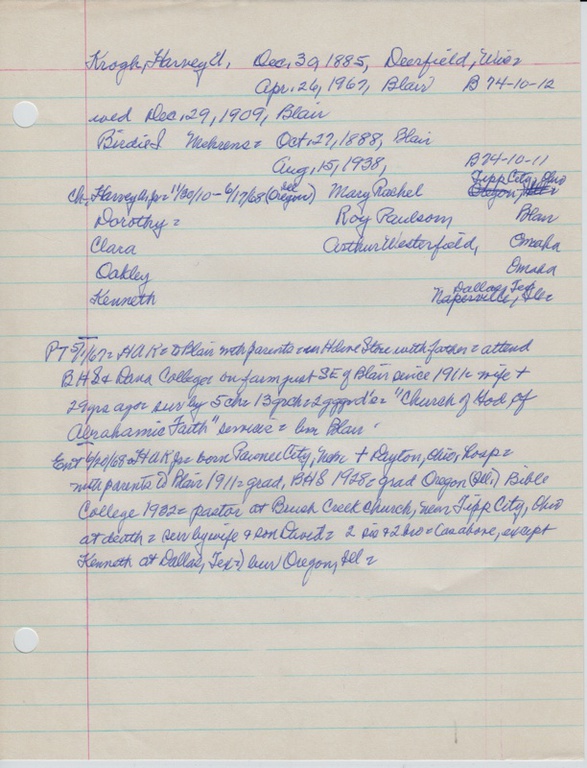 Krogh, Harvey U. Dec. 30, 1885, Deerfield, Wis=
Apr. 26, 1967, Blair B 74-10-12
wed Dec. 29, 1909, Blair
Birdie I Mehrens= Oct. 27, 1888, Blair
Aug. 15, 1938, B74-10-11
Tipp City, Ohio
ch- Harvey Jr= 11/30/10 - 6/17/68 (Ill Oregon) Mary Rachel Oregon, Ill=
Dorothy= Roy Paulsom Blair
Clara Arthur Westerfield, Omaha
Oakley Omaha
Dallas, Tex
Kenneth Naperville, Ill=
PT 5/1/67= HUK= to Blair with parents= in Hdwe Store with father= attend
BHS & Dana College= on farm just SE of Blair since 1911= wife +
29 yrs ago= surv by 5 ch= 13 grch= 2 ggrd's= "Church of God of
Abrahamic Faith" services= bur Blair.
Ent 6/20/68= HUK Jr= born Pawnee City, Neb= + Dayton, Ohio, Hosp=
with parents to Blair 1911= grad, BHS 1928= grad Oregon (Ill.) Bible
College 1932= pastor at Brush Creek Church, near Tipp City, Ohio
at death= surv by wife & son David= 2 sis & 2 bro= (as above, except
Kenneth at Dallas, Tex=) bur Oregon, Ill=